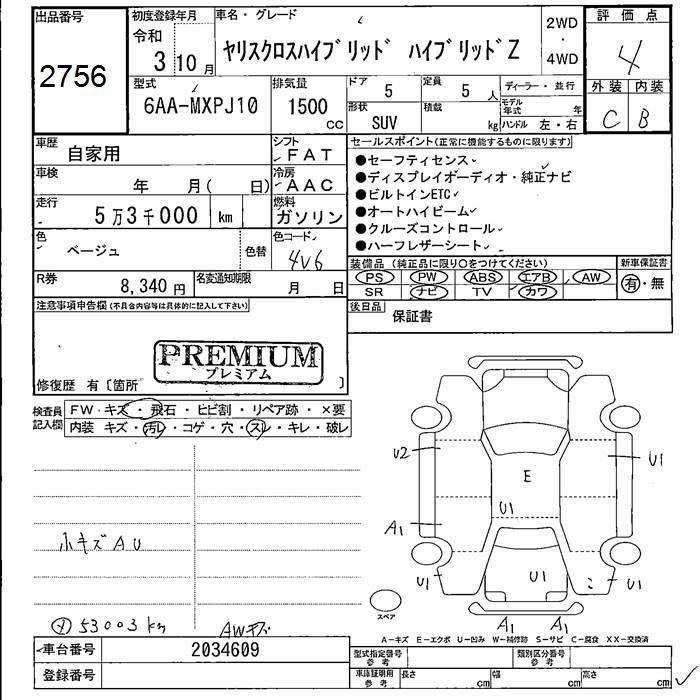 出品番号
2756
初度登録年月
令和
3年10月
車名・グレード
ヤリスクロスハイブリッド ハイブリッドZ
2WD
・
4WD
評価点
4
外装 内装
C B
型式
6AA-MXPJ10
排気量
1500
cc
ドア
5
定員
5人
形状
SUV
積載
kg
ディーラー・並行
モデル年式 年
ハンドル 左・右
車歴
自家用
シフト
FAT
車検
年 月( 日)
冷房
AAC
走行
5万3千000 km
燃料
ガソリン
色
ベージュ
色替
色コード
4V6
R券
8,340円
名変通知期限
月 日
セールスポイント(正常に機能するものに限ります)
●セーフティセンス
●ディスプレイオーディオ・純正ナビ
●ビルトインETC
●オートハイビーム
●クルーズコントロール
●ハーフレザーシート
装備品(純正品に限り○をつけてください)
PS PW ABS エアB AW
SR ナビ TV カワ
新車保証書
有・無
後日品
保証書
注意事項申告欄(不具合内容等は具体的に記入して下さい)
PREMIUM
プレミアム
修復歴 有〔箇所 〕
検査員記入欄
FW・キズ・飛石・ヒビ割・リペア跡・×要
内装 キズ・汚レ・コゲ・穴・スレ・キレ・破レ
小キズAU
53003km
AWキズ
U2
U1
E
U1
A1
U1
U1
U1
スペア
A1 A1
A-キズ E-エクボ U-凹み W-補修跡 S-サビ C-腐食 XX-交換済
車台番号
2034609
登録番号
型式指定番号
参考
類別区分番号
参考
車庫証明用
参考
長さ cm
幅 cm
高さ cm